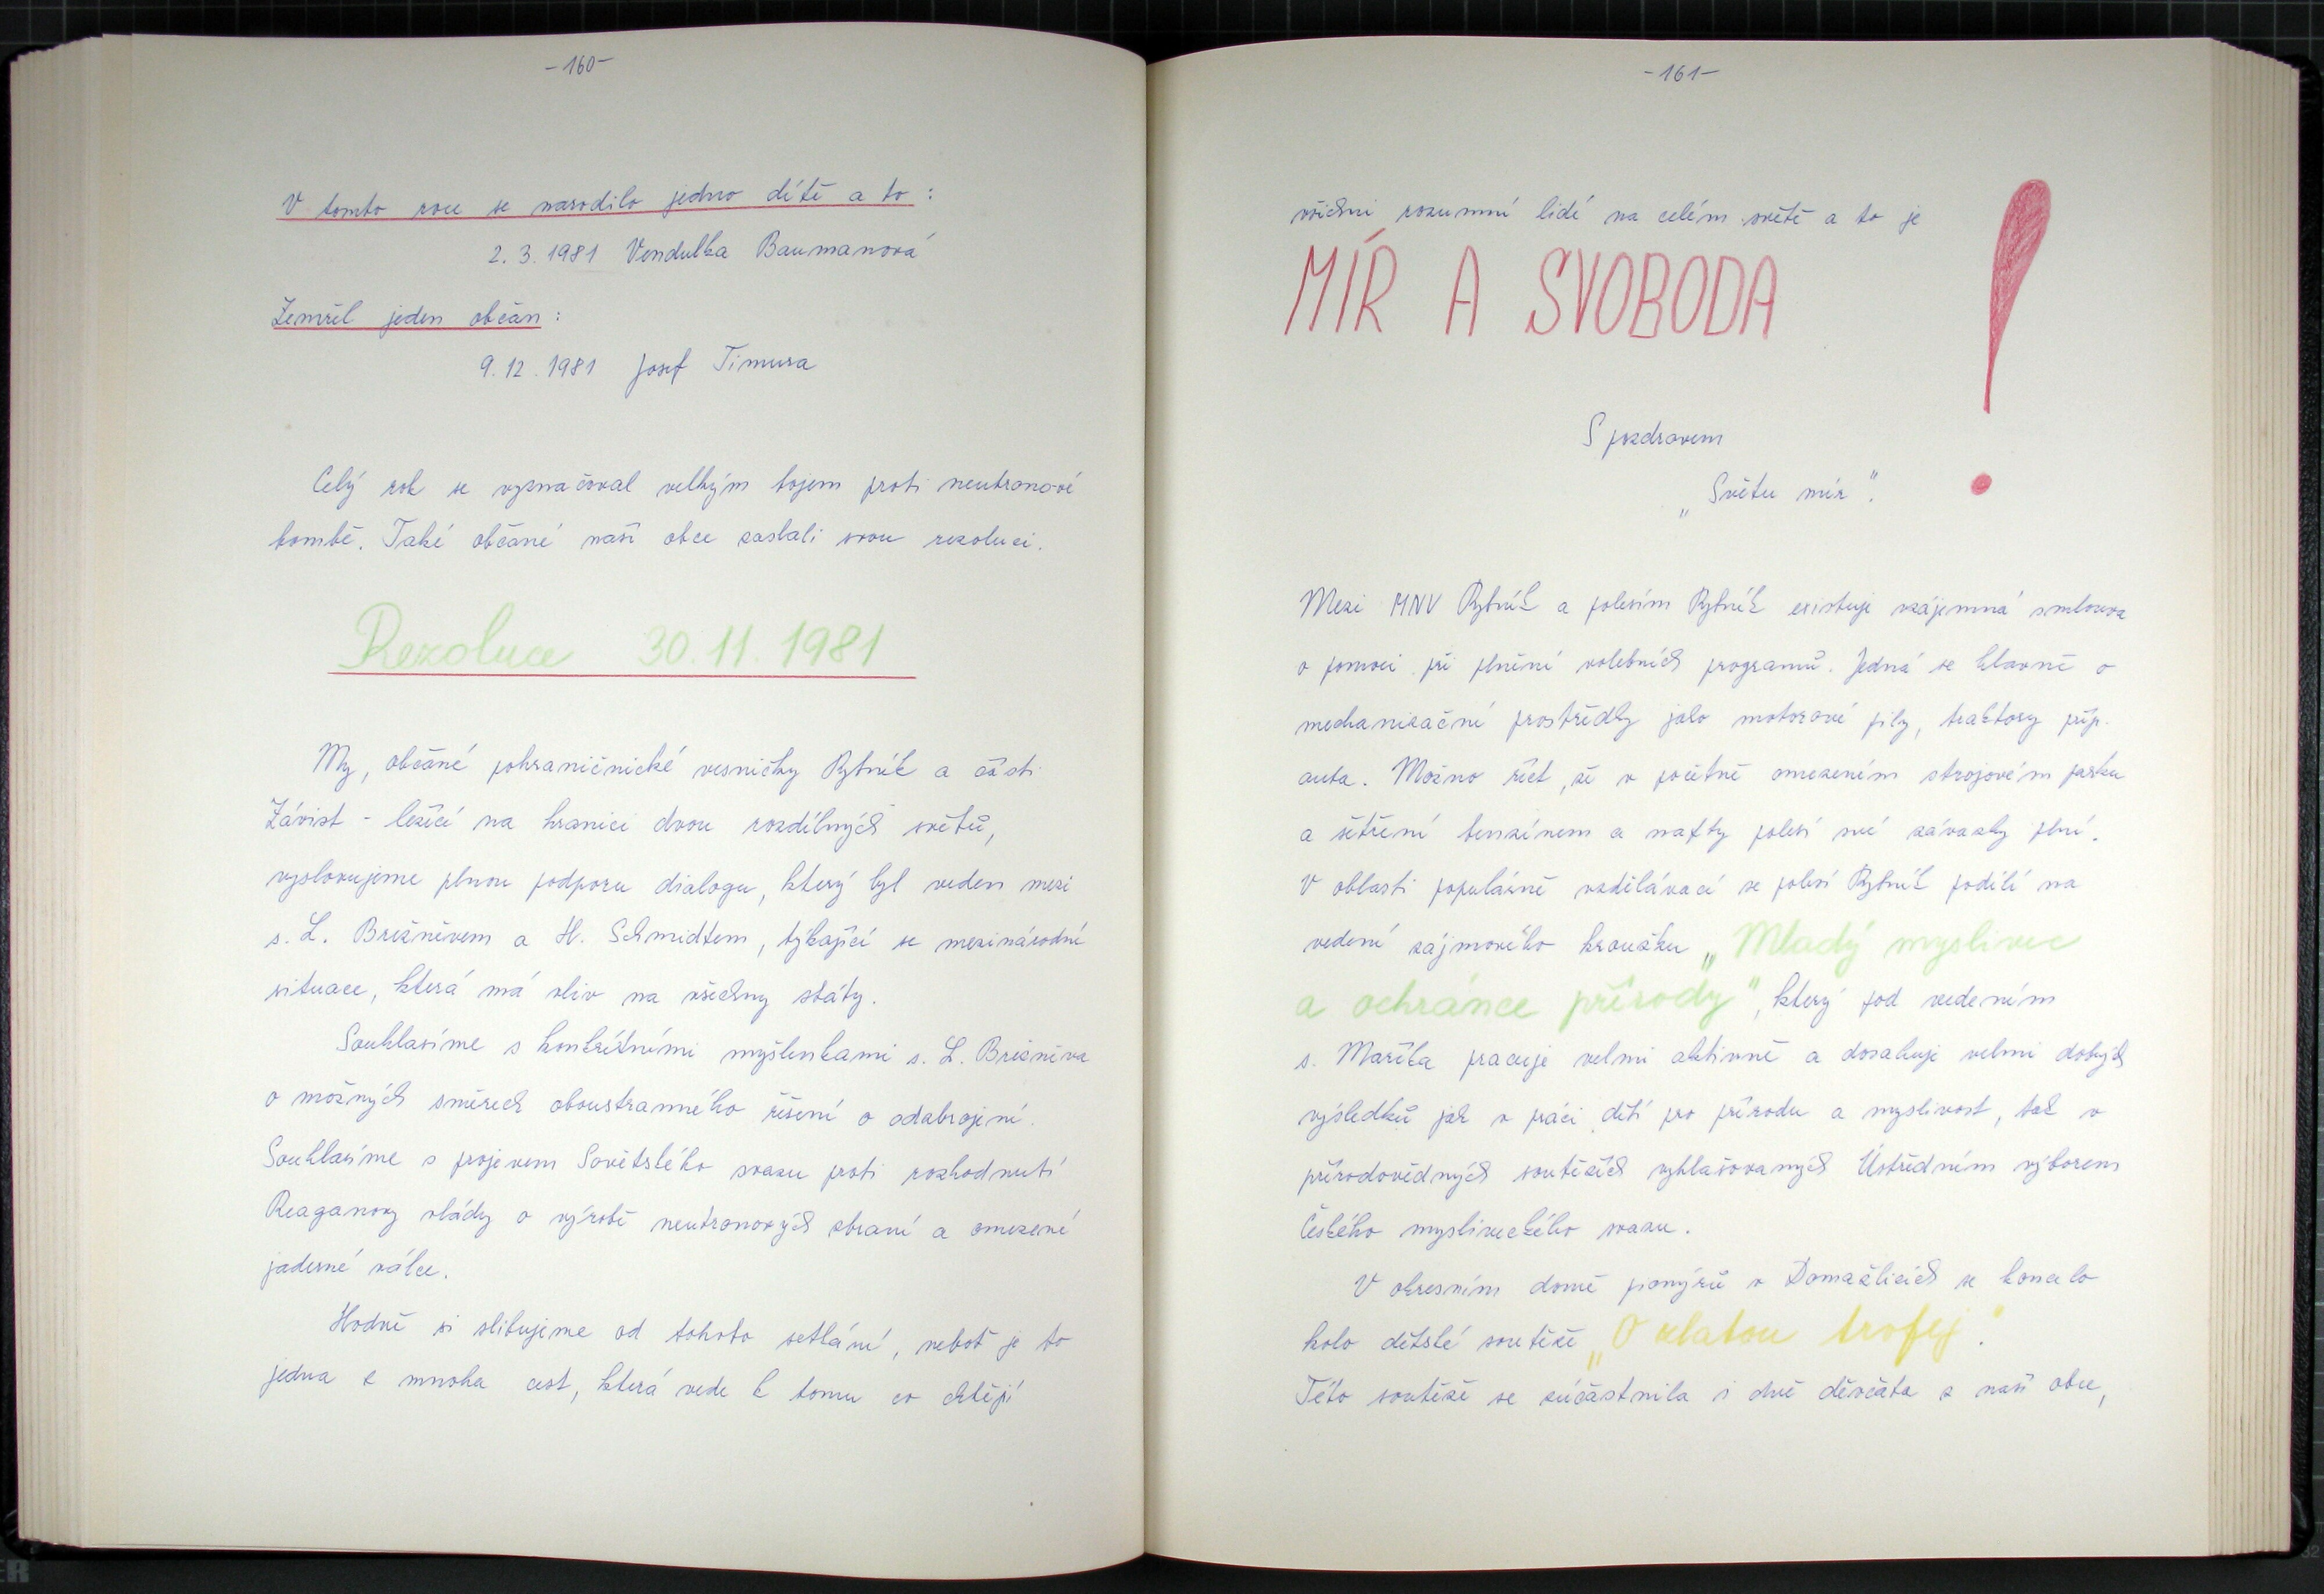 -160-
V tomto roce se narodilo jedno dítě a to :
2. 3. 1981 Vendulka Baumanová
Zemřel jeden občan :
9. 12. 1981 Josef Timura
Celý rok se vyznačoval velkým bojem proti neutronové
bombě. Také občané naší obce zaslali svou rezoluci.
Rezoluce 30. 11. 1981
My, občané pohraničnické vesničky Rybník a části
Závist - ležící na hranici dvou rozdílných světů,
vyslovujeme plnou podporu dialogu, který byl veden mezi
s. L. Brežněvem a H. Schmidtem, týkající se mezinárodní
situace, která má vliv na všechny státy.
Souhlasíme s konkrétními myšlenkami s. L. Brežněva
o možných směrech oboustranného řešení o odzbrojení.
Souhlasíme s projevem Sovětského svazu proti rozhodnutí
Reaganovy vlády o výrobě neutronových zbraní a omezené
jaderné válce.
Hodně si slibujeme od tohoto setkání, neboť je to
jedna z mnoha cest, která vede k tomu co chtějí
-161-
všichni rozumní lidé na celém světě a to je
MÍR A SVOBODA !
S pozdravem
„Světu mír".
Mezi MNV Rybník a polesím Rybník existuje vzájemná smlouva
o pomoci při plnění volebních programů. Jedná se hlavně o
mechanizační prostředky jako motorové pily, traktory příp.
auta. Možno říct, že v početně omezeném strojovém parku
a šetření benzínem a nafty polesí své závazky plní.
V oblasti populárně vzdělávací se polesí Rybník podílí na
vedení zájmového kroužku „Mladý myslivec
a ochránce přírody", který pod vedením
s. Maříka pracuje velmi aktivně a dosahuje velmi dobrých
výsledků jak v práci dětí pro přírodu a myslivost, tak v
přírodovědných soutěžích vyhlašovaných Ústředním výborem
Českého mysliveckého svazu.
V okresním domě pionýrů v Domažlicích se konalo
kolo dětské soutěže „O zlatou trofej".
Této soutěže se zúčastnila i dvě děvčata z naší obce,